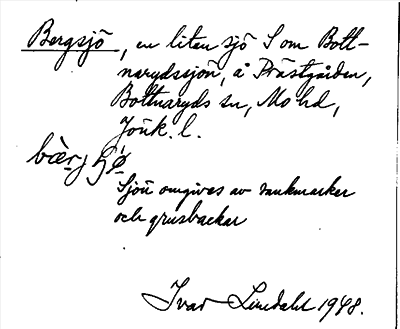 Bergsjö, en liten sjö S om Bott-
narydssjön, å Prästgården,
Bottnaryds sn, Mo hd,
Jönk. l.
bærjʂø
Sjön omgives av tankmarker
och grusbackar
Ivar Lindahl 1948.